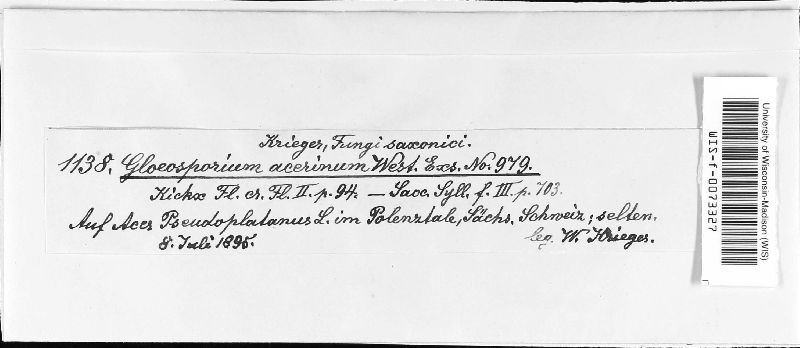 Krieger, Fungi saxonici.
1138. Gloeosporium acerinum West. Exs. No. 979.
Kickx Fl. cr. Fl. II. p. 94. — Sacc. Syll. f. III. p. 703.
Auf Acer Pseudoplatanus L. im Polenztale, Sächs. Schweiz; selten.
8. Juli 1895.
leg. W. Krieger.
University of Wisconsin-Madison (WIS)
WIS-f-0073327